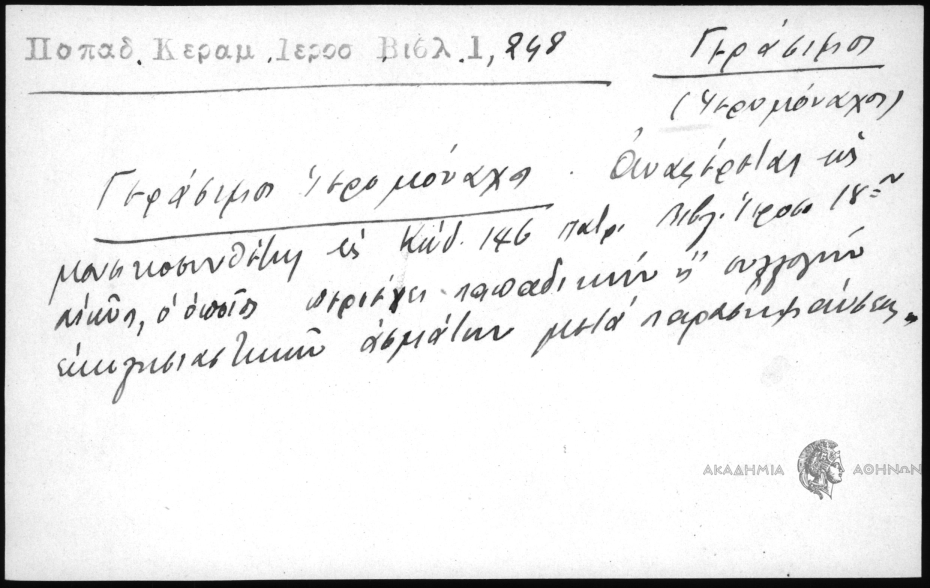 Παπαδ. Κεραμ. Ιεροσ Βιβλ. 1, 248
Γεράσιμος
(Ἱερομόναχος)
Γεράσιμος Ἱερομόναχος. Ἀναφέρεται ὡς
μουσικοσυνθέτης εἰς Κώδ. 146 πατρ. Βιβλ. Ἱεροσ 18ου
αἰῶνος, ὁ ὁποῖος περιέχει παπαδικήν ἤ συλλογήν
ἐκκλησιαστικῶν ἀσμάτων μετά παρασημάνσεως
ΑΚΑΔΗΜΙΑ ΑΘΗΝΩΝ